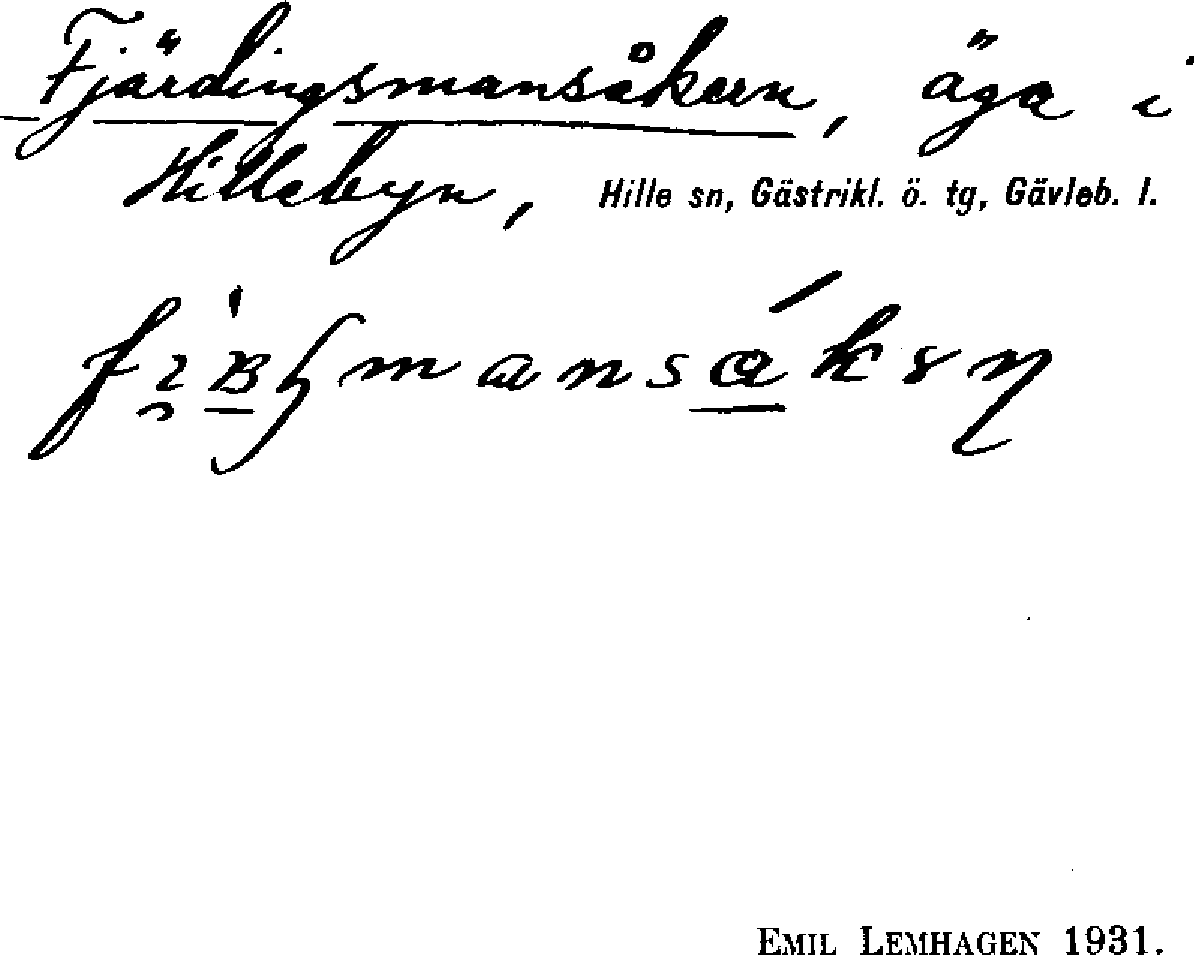 Fjärdingsmansåkern, äga i
Hillebyn, Hille sn, Gästrikl. ö. tg, Gävleb. l.
EMIL LEMHAGEN 1931.